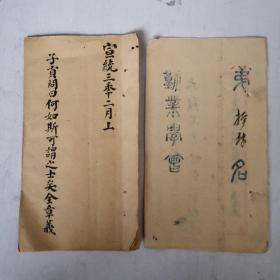 宣統三年十二月上
子貢問曰何如斯可謂之士矣全章義
第拾號名
勸業學會